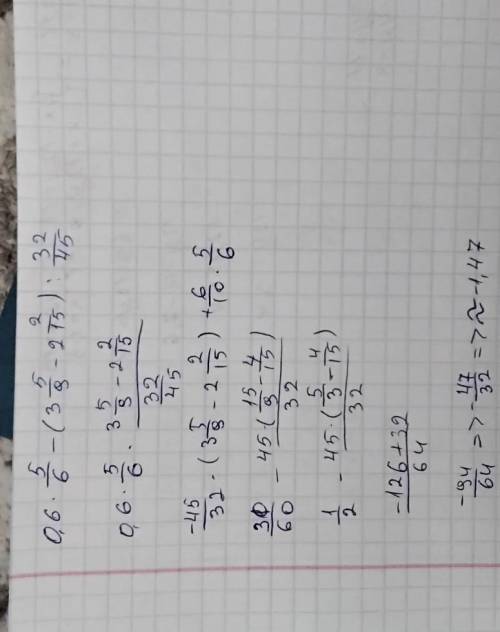 0,6 · 5/6 − (3 5/9 − 2 2/15) : 32/45
0,6 · 5/6 · (3 5/9 − 2 2/15)/(32/45)
−45/32 · (3 5/9 − 2 2/15) + 6/10 · 5/6
30/60 − 45 · (15/9 − 4/15)/32
1/2 − 45 · (5/3 − 4/15)/32
(−126+32)/64
−94/64 => −47/32 => ≈ −1,47